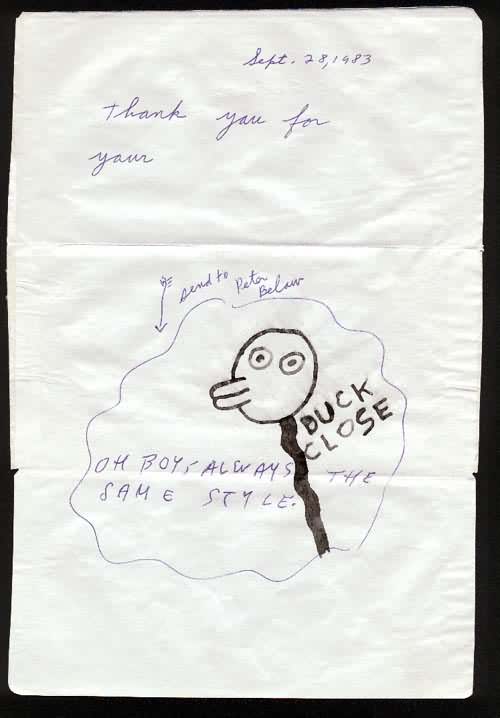 Sept. 28, 1983
Thank you for
your
send to Peter
Below
DUCK
CLOSE
OH BOY, ALWAYS THE
SAME STYLE.